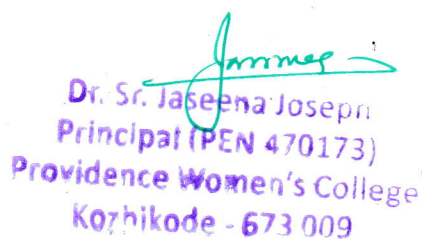 Dr. Sr. Jaseena Joseph
Principal (PEN 470173)
Providence Women's College
Kozhikode - 673 009